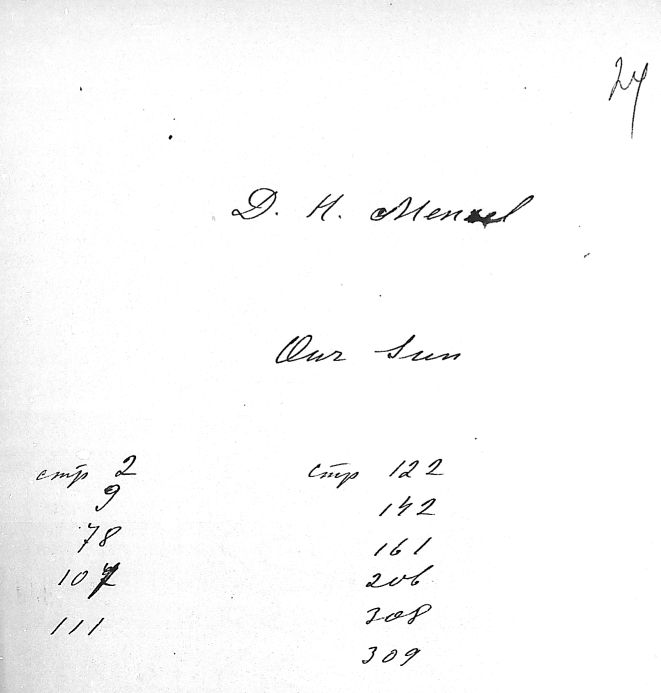 24
D. H. Menzel
Our Sun
стр 2
9
78
107
111
стр 122
142
161
206
308
309